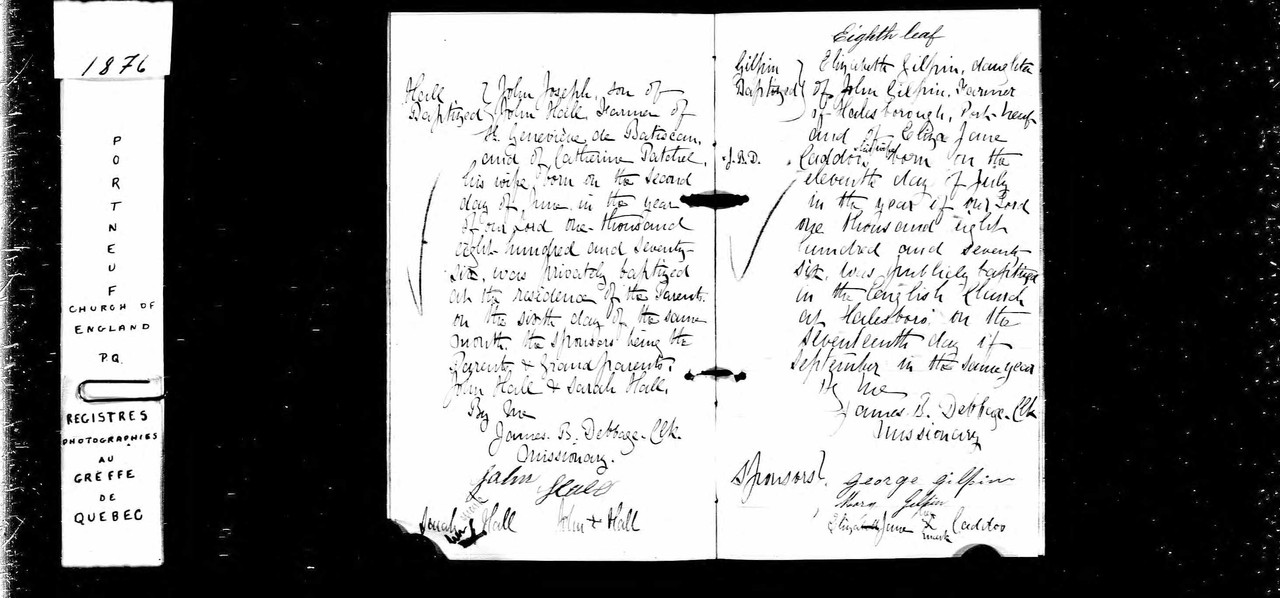 1876
PORTNEUF
CHURCH OF
ENGLAND
P.Q.
REGISTRES
PHOTOGRAPHIES
AU
GREFFE
DE
QUEBEC
Hall
Baptized
John Joseph, son of
John Hall Farmer of
St. Genevieve de Batiscan,
and of Catherine
his wife, born on the second
day of June in the year
of our Lord one thousand
eight hundred and seventy-
six, was privately baptized
at the residence of the Parents.
on the sixth day of the same
month. the sponsors being the
Parents & Grand parents.
John Hall & Sarah Hall.
By me
James. B. Debbage. Clk.
Missionary.
John Hall
Sarah Hall John + Hall
Eighth leaf
Gilpin
Baptized
Elizabeth Gilpin, daughter
of John Gilpin, Farmer
of Halesborough, Port-neuf
and of Eliza Jane
J.B.D.
born on the
eleventh day of July
in the year of our Lord
one thousand eight
hundred and seventy-
six, was publicly baptized
in the English Church
at Halesboro. on the
seventeenth day of
September in the same year
By me
James. B. Debbage. Clk.
Missionary
Sponsors. George Gilpin
Mary Gilpin
Elizabeth Jane X
mark